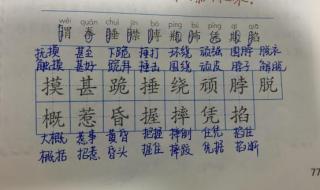 wèi quán chuí jīn bó píng bú pīng qì qiā
抚摸 甚至 下跪 捶打 环绕 顽强 围脖 脱衣
触摸 甚好 跪拜 捶击 围绕 顽皮 脖子 解脱
摸 甚 跪 捶 绕 顽 脖 脱
概 惹 昏 握 摔 凭 掐
大概 惹事 黄昏 把握 摔倒 任凭 掐住
概括 招惹 昏头 握住 摔跤 凭据 掐断
77